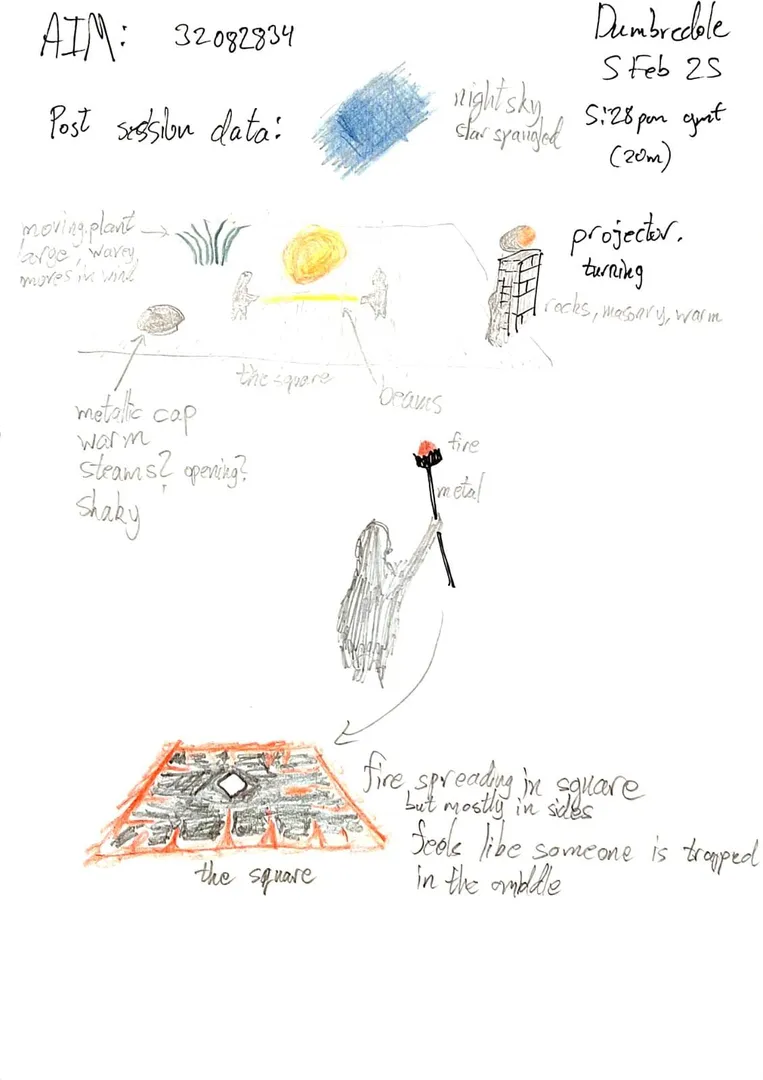 AIM: 32082834
Dumbredole
5 Feb 25
5:28 pm gmt
(20m)
Post session data:
night sky
star spangled
moving plant
large, wavey,
moves in wind
projector.
turning
rocks, masonry, warm
the square
beams
metallic cap
warm
steams? opening?
shaky
fire
metal
fire spreading in square
but mostly in sides
feels like someone is trapped
in the middle
the square